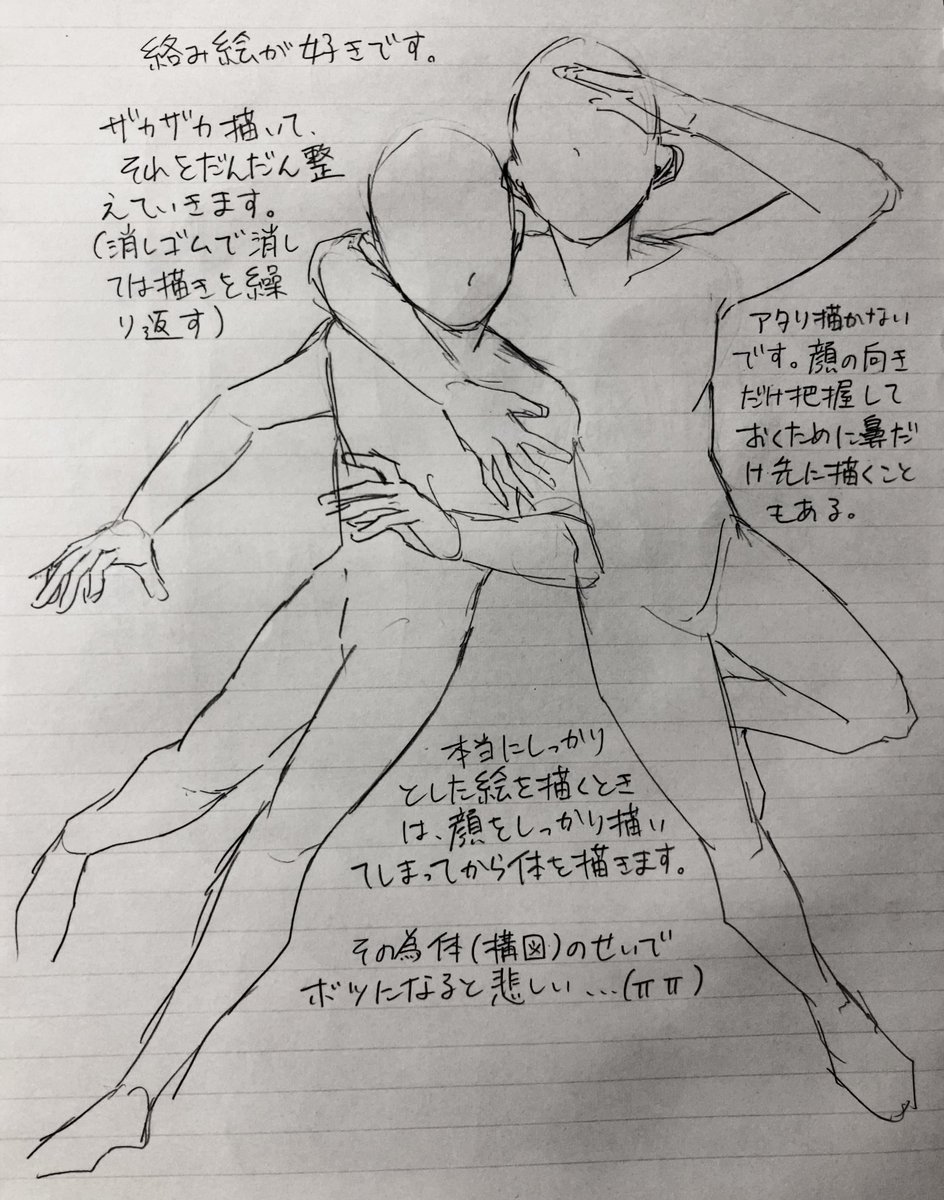 絡み絵が好きです。
ザカザカ描いて、
それをだんだん整
えていきます。
(消しゴムで消し
ては描きを繰
り返す)
アタリ描かない
です。顔の向き
だけ把握して
おくために鼻だ
け先に描くこと
もある。
本当にしっかり
とした絵を描くとき
は、顔をしっかり描い
てしまってから体を描きます。
その為体(構図)のせいで
ボツになると悲しい...(ππ)